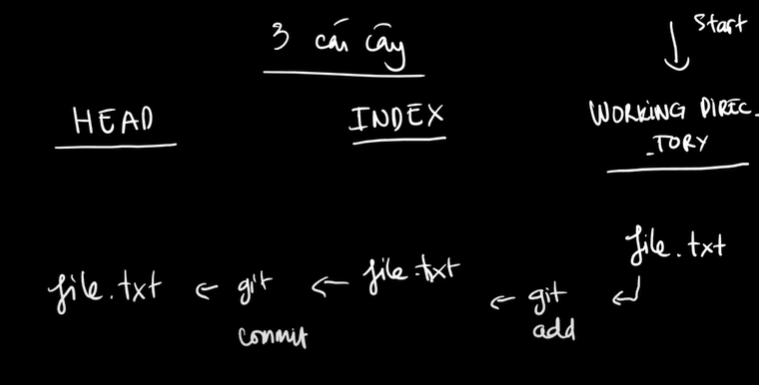 3 cái cây
Start
HEAD
INDEX
WORKING DIREC_
_TORY
file.txt
file.txt ← git commit ← file.txt ← git add ↵